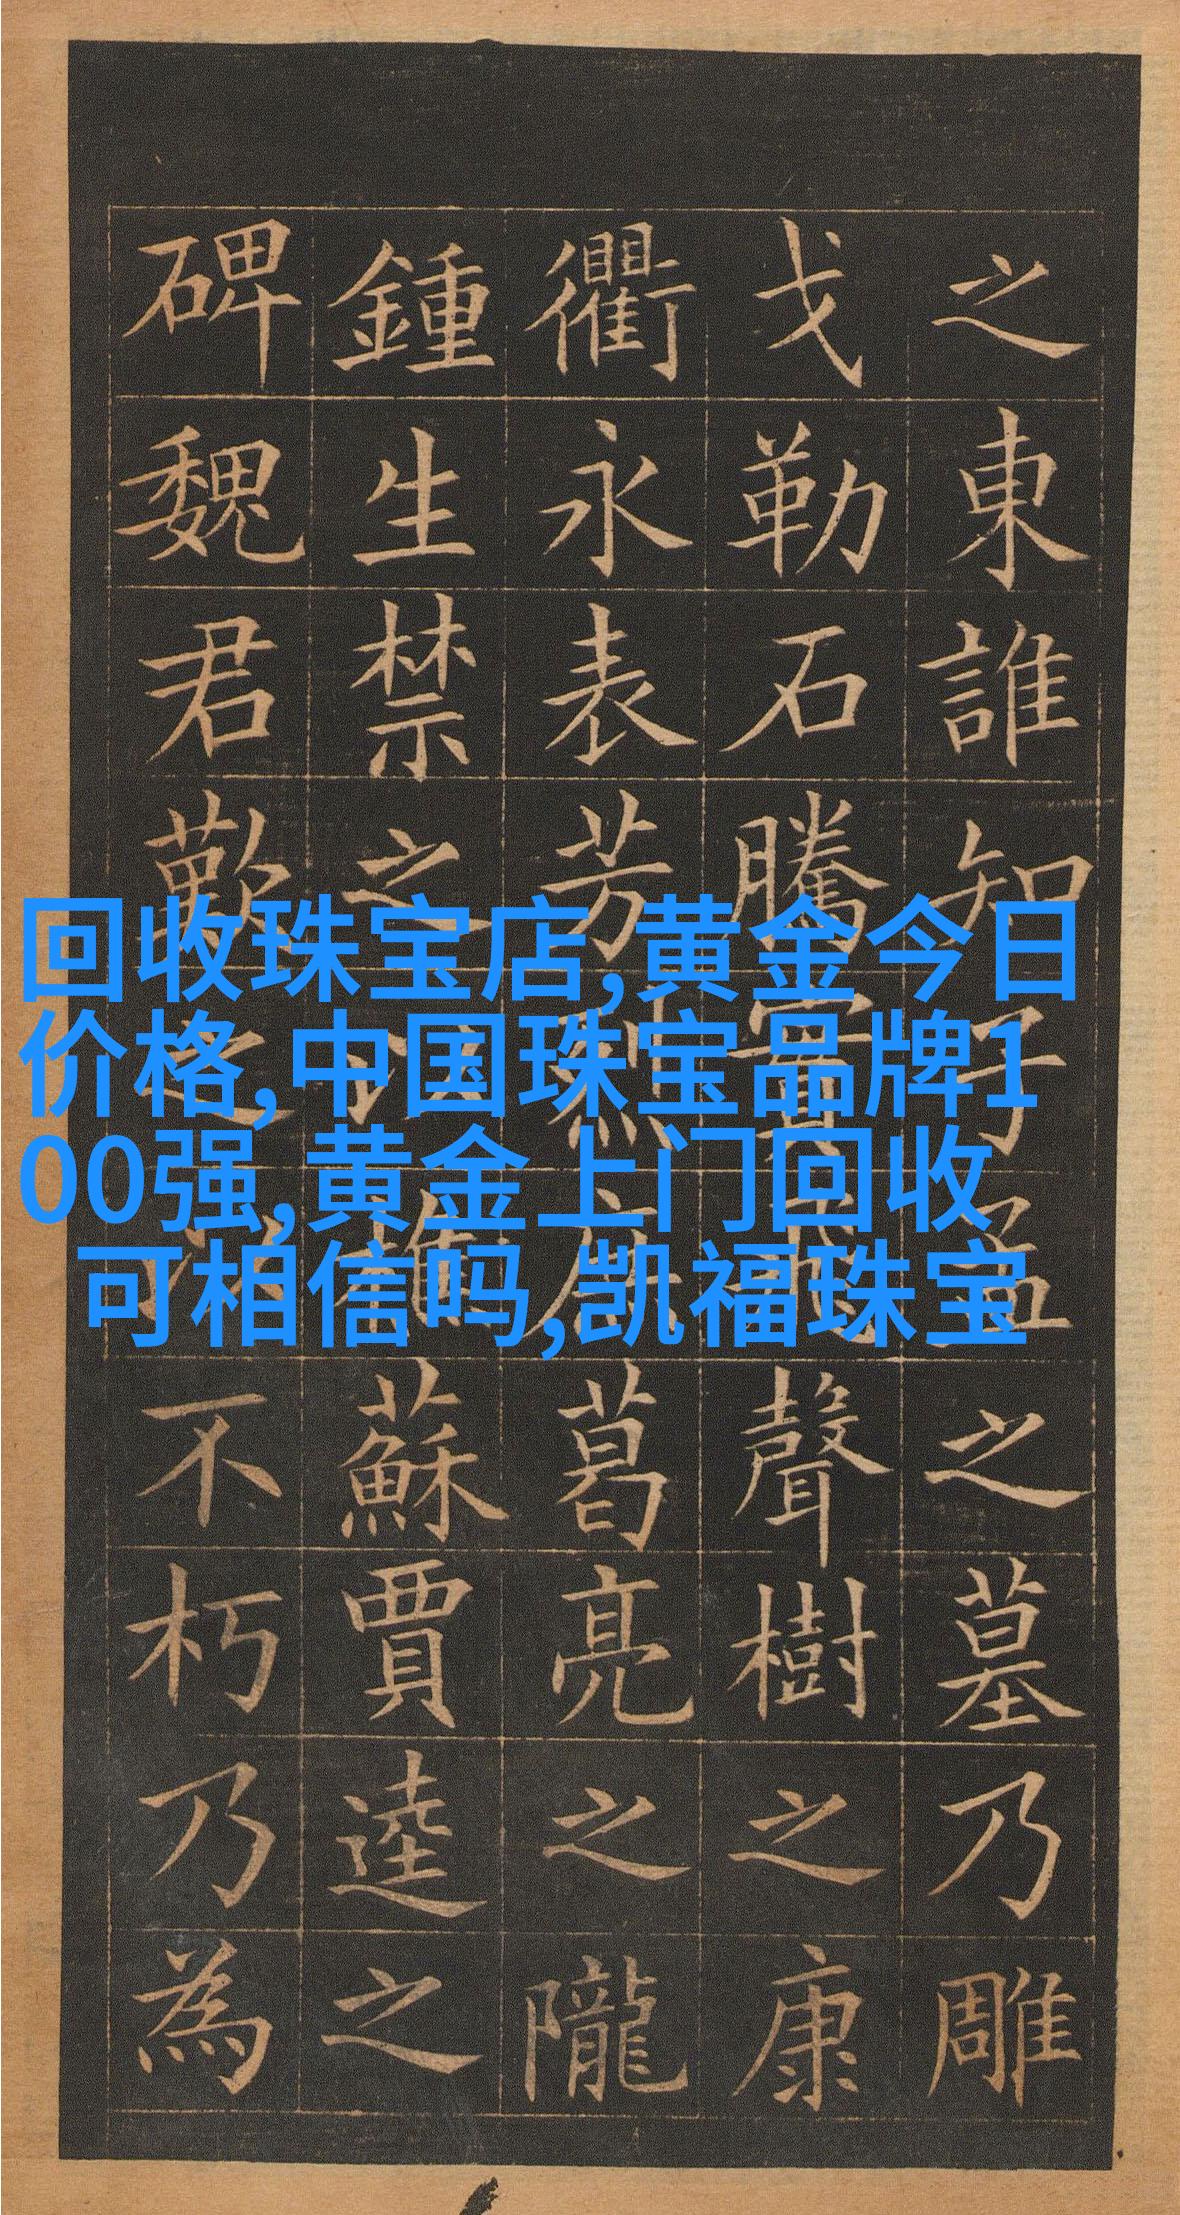 之東誰知子孟之墓乃雕
戈勒石騰實聲樹之康
衢永表芳烈庶葛亮之隴
鍾生禁之樵蘇賈逵之
碑魏君歎之不朽乃為
回收珠宝店,黄金今日
价格,中国珠宝品牌1
00强,黄金上门回收
可相信吗,凯福珠宝